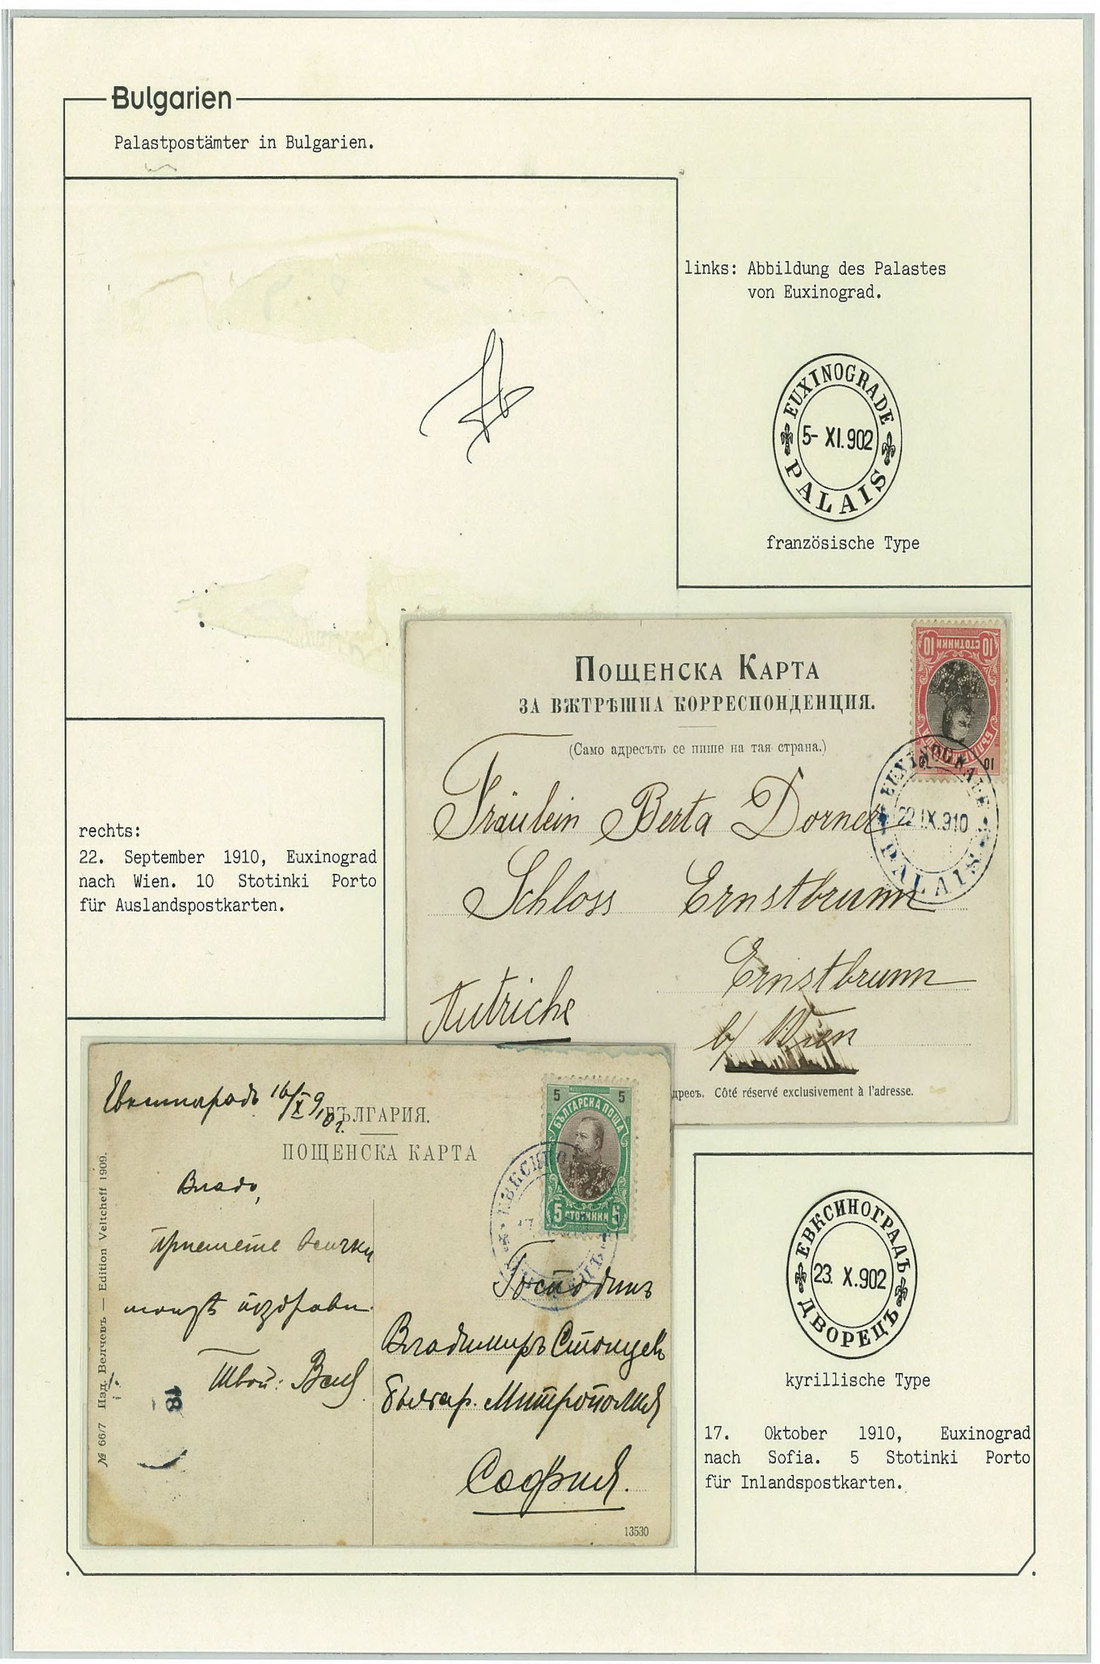 Bulgarien
Palastpostämter in Bulgarien.
links: Abbildung des Palastes
von Euxinograd.
EUXINOGRADE
5- XI.902
PALAIS
französische Type
ПОЩЕНСКА КАРТА
ЗА ВѪТРѢШНА КОРРЕСПОНДЕНЦИЯ.
(Само адресътъ се пише на тая страна.)
10 СТОТИНКИ 10
10
EUXINOGRADE
22.IX.910
PALAIS
Fräulein Berta Dorner
Schloss Ernstbrunn
Ernstbrunn
Autriche
b/ Wien
Côté réservé exclusivement à l'adresse.
rechts:
22. September 1910, Euxinograd
nach Wien. 10 Stotinki Porto
für Auslandspostkarten.
Евксиноградъ 16/X 910 г.
БЪЛГАРИЯ.
ПОЩЕНСКА КАРТА
5 5
БЪЛГАРСКА ПОЩА
5 СТОТИНКИ 5
Владо,
приемете всички
поздрави
Твой:
Господинъ
Владимиръ
Българ. Митрополия
София.
№ 66/7 Изд. Велчевъ — Edition Veltcheff 1909.
18
13530
ЕВКСИНОГРАДЪ
23. X.902
ДВОРЕЦЪ
kyrillische Type
17. Oktober 1910, Euxinograd
nach Sofia. 5 Stotinki Porto
für Inlandspostkarten.